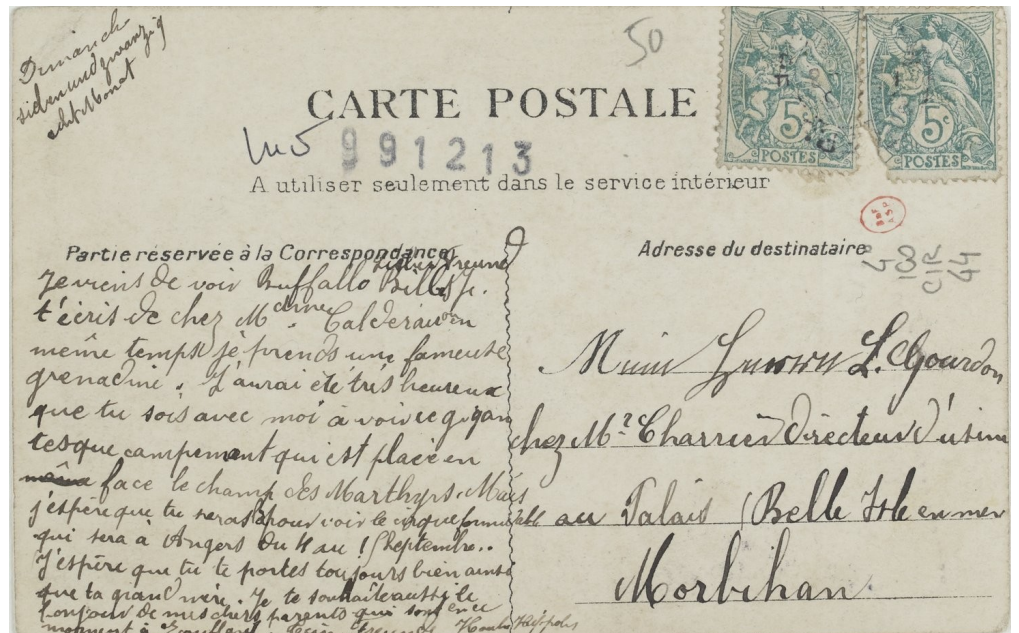 Dimanch
siebenundzwanzig
acht Monat
50
CARTE POSTALE
991213
A utiliser seulement dans le service intérieur
5c
POSTES
5c
POSTES
Partie réservée à la Correspondance
Lieber Freund
Je viens de voir Buffallo Bill & je
t'écris de chez Mdme. Calderau on
meme temps je prends une fameuse
grenadine. J'aurai été très heureux
que tu sois avec moi à voir ce gigan
tesque campement qui est placé en
même face le champ des Marthyrs. Mais
j'espère que tu seras là pour voir le cirque formidable
qui sera à Angers du 4 au Septembre..
J'espère que tu te portes toujours bien ainsi
que ta grand'mère. Je te souhaite aussi le
bonjour de mes chers parents qui sont en ce
moment à
Adresse du destinataire
4°
108
CIR
44
Mein Herrn L. Gourdon
chez Mr Charrier directeur d'usine
au Palais (Belle Isle en mer
Morbihan